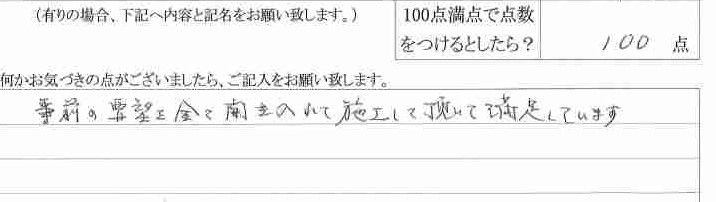 (有りの場合、下記へ内容と記名をお願い致します。)
100点満点で点数
をつけるとしたら?
100 点
何かお気づきの点がございましたら、ご記入をお願い致します。
事前の要望を全て聞き入れて施工して頂いて満足しています